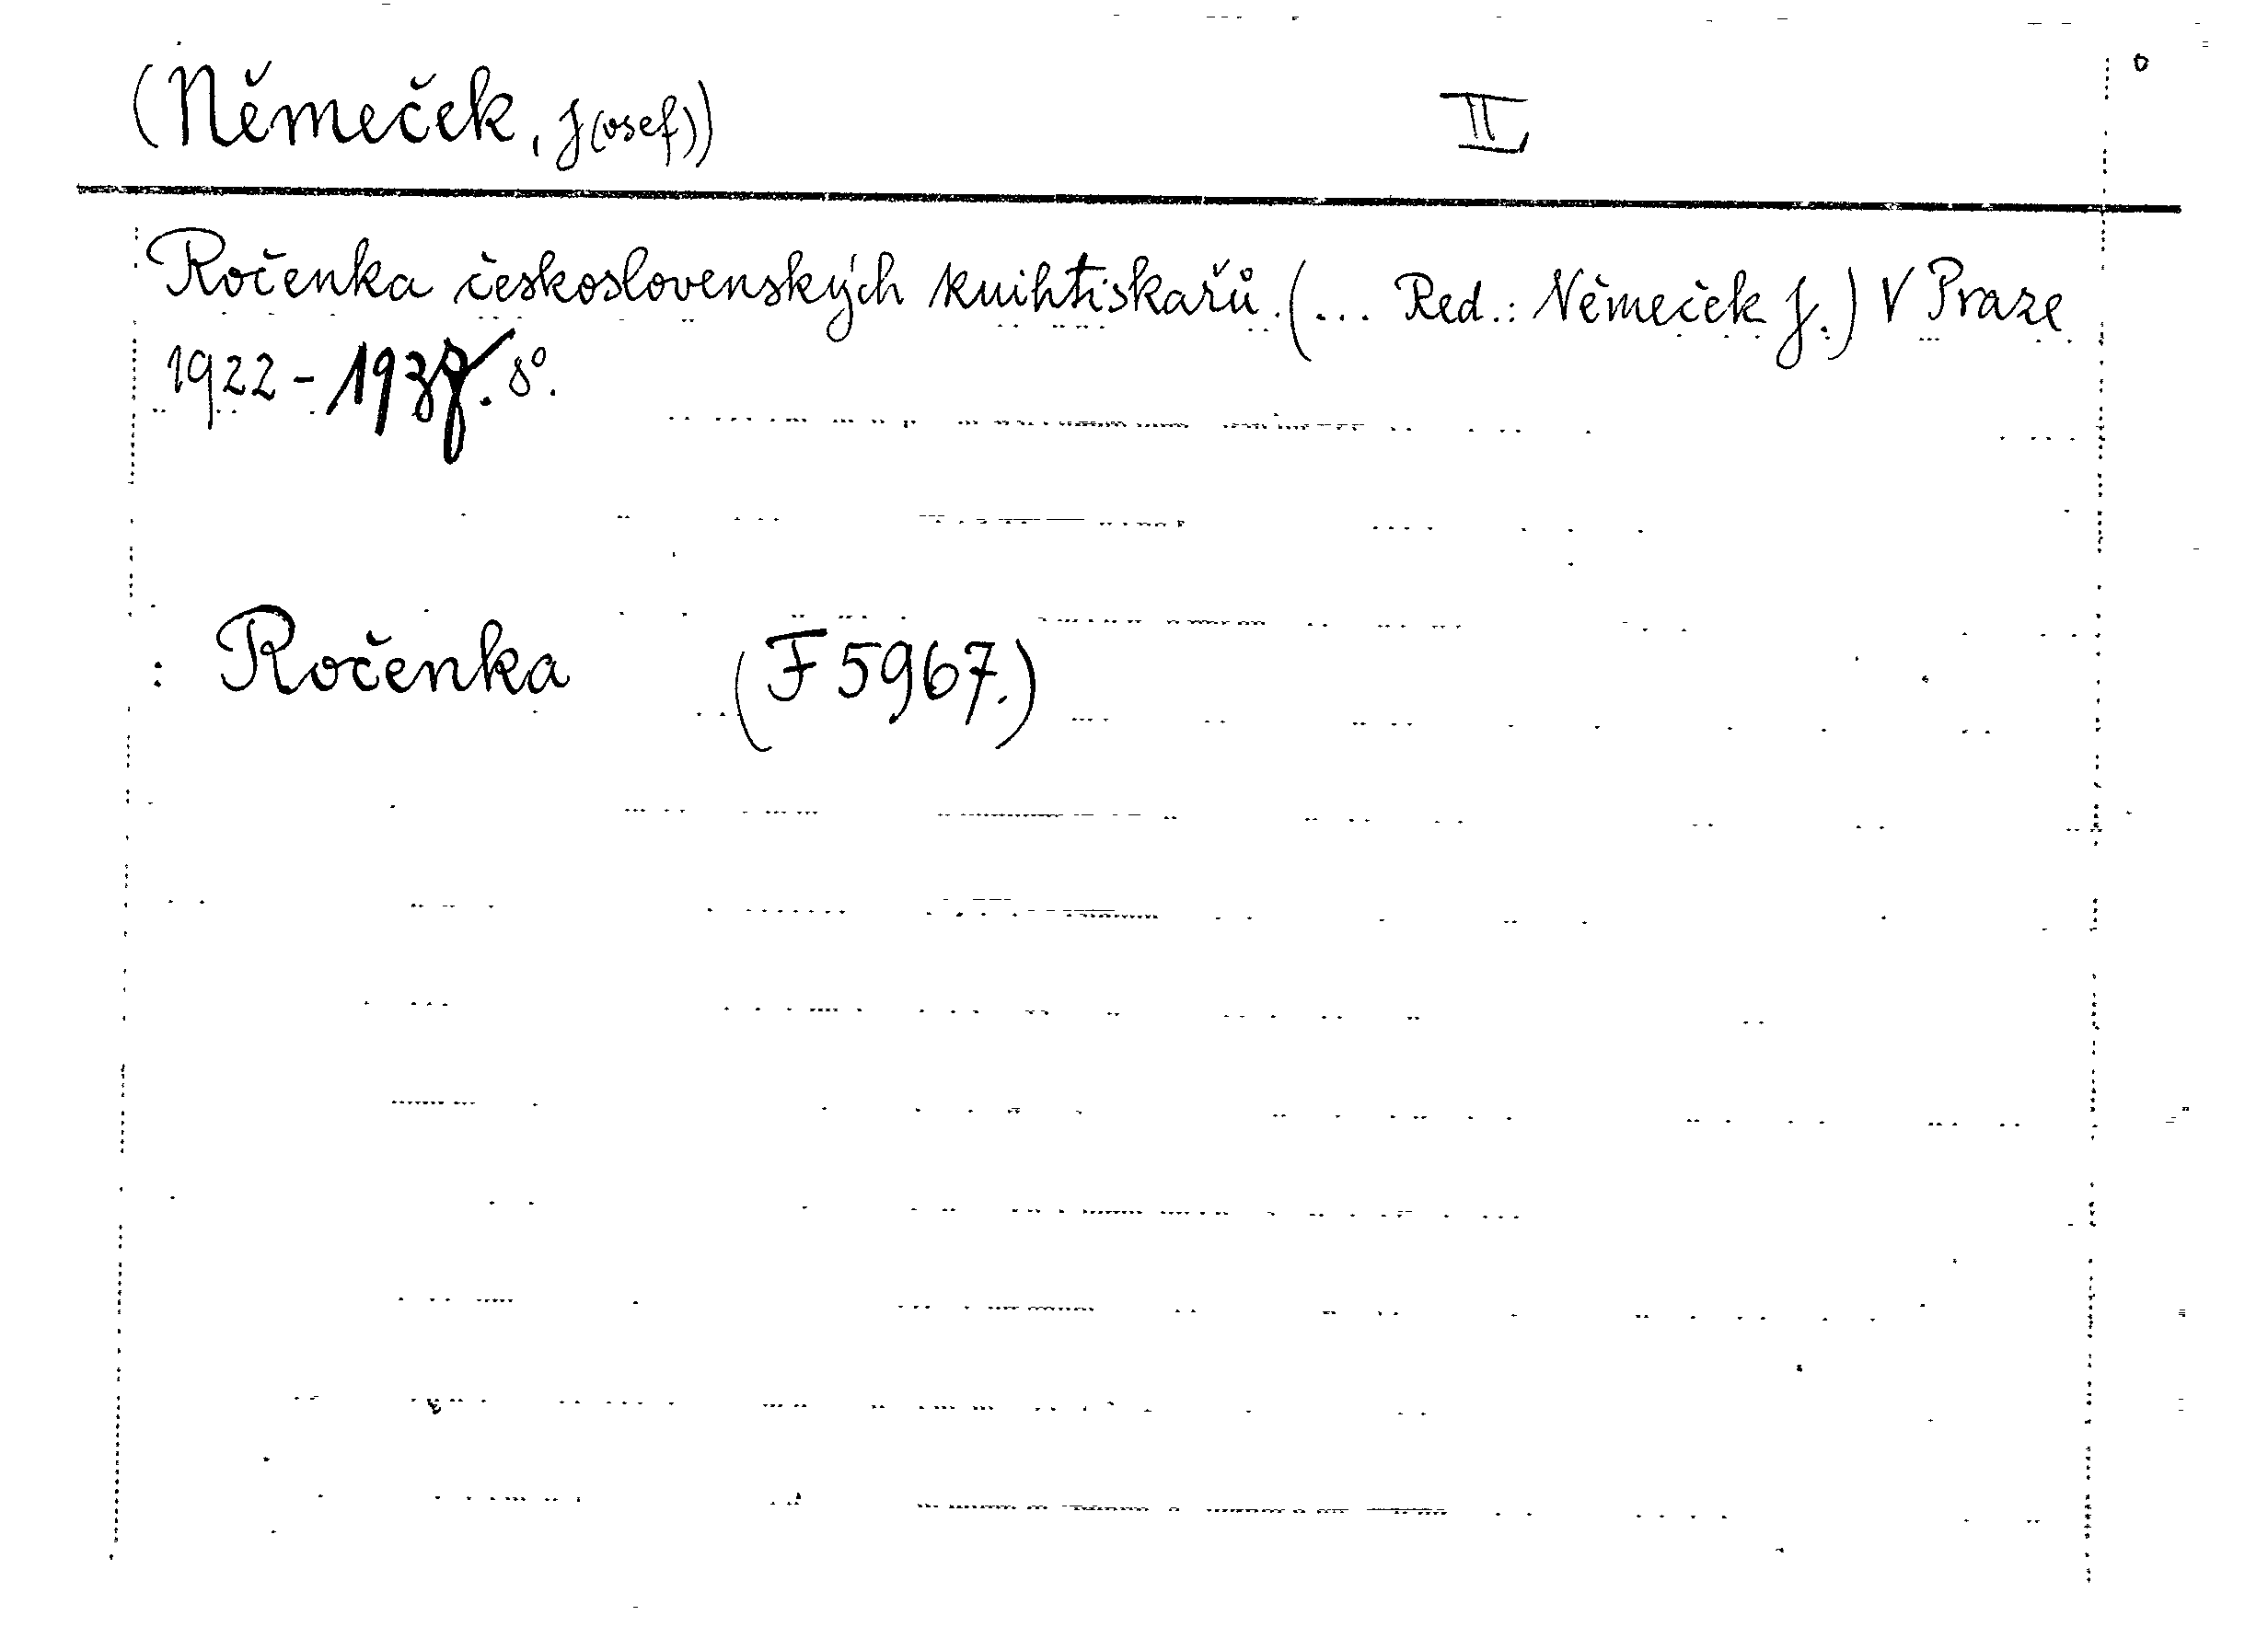 (Němeček, J(osef)) II
Ročenka československých knihtiskařů. (... Red.: Němeček J.) V Praze
1922 - 8°.
: Ročenka (F 5967.)